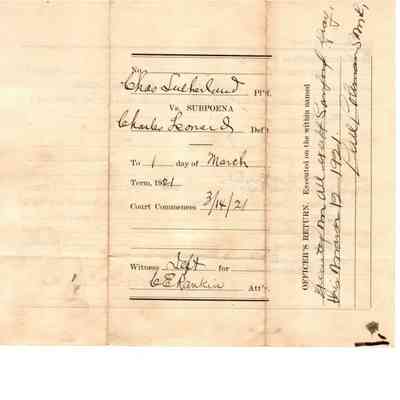 No.
Chas Sutherland Pl'ff.
Vs. SUBPOENA
Charles Leonard Def't
To 1 day of March
Term, 1921
Court Commences 3/14/21
Witness Deft for
C E Rankin Att'y.
OFFICER'S RETURN. Executed on the within named
on all except Sanford Gray,
this March 12 1921.